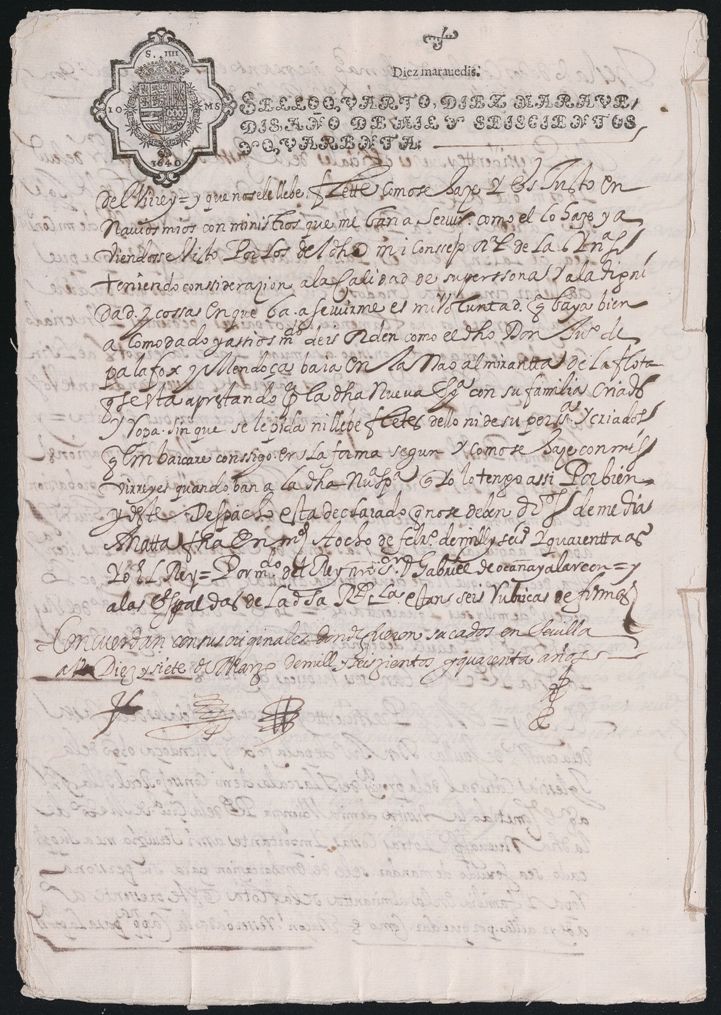 S. IIII
1O MS
1640
Diez marauedis.
SELLO QVARTO, DIEZ MARAVE,
DIS, AÑO DE MIL Y SEISCIENTOS
Y QVARENTA.
del Virrey = y que no se le llebe flette como se haze y es Justo en
Nauios mios con ministros que me ban a seruir. como el lo haze ya
viendose Visto Por los del dho mi Conssejo Rl de las Ynas
teniendo considerazion a la Calidad de su perssona Y a la digni
dad. y cossas en que ba a seruirme es mi Voluntad. q baya bien
acomodado y assi os mdo deis orden como el dho Don Juo de
palafox y Mendoça baia en la Nao almiranta de la flota
q se esta aprestando pa la dha Nueua Espa con su familia Criados
y Ropa. sin que se le pida ni llebe fletes dello ni de su persa Y criados
q embarcare conssigo. en la forma segun Y como se haze con mis
Virreyes quando ban a la dha Nua Spa q Yo lo tengo assi Por bien
y deste Despacho esta declarado q no se deben dros de media
Anatta fha en Md a ocho de febo de mill y seiso y quarentta as
Yo el Rey = Por mdo del Rey nro sr D Gabriel de ocaña y alarcon = y
a las Espaldas de la dha Rl Cla estan seis Rubricas de firmas
Concuerdan con sus originales donde fueron sacados en Seuilla
a Diez y siete de Marzo de mill y seiszientos y quarenta años